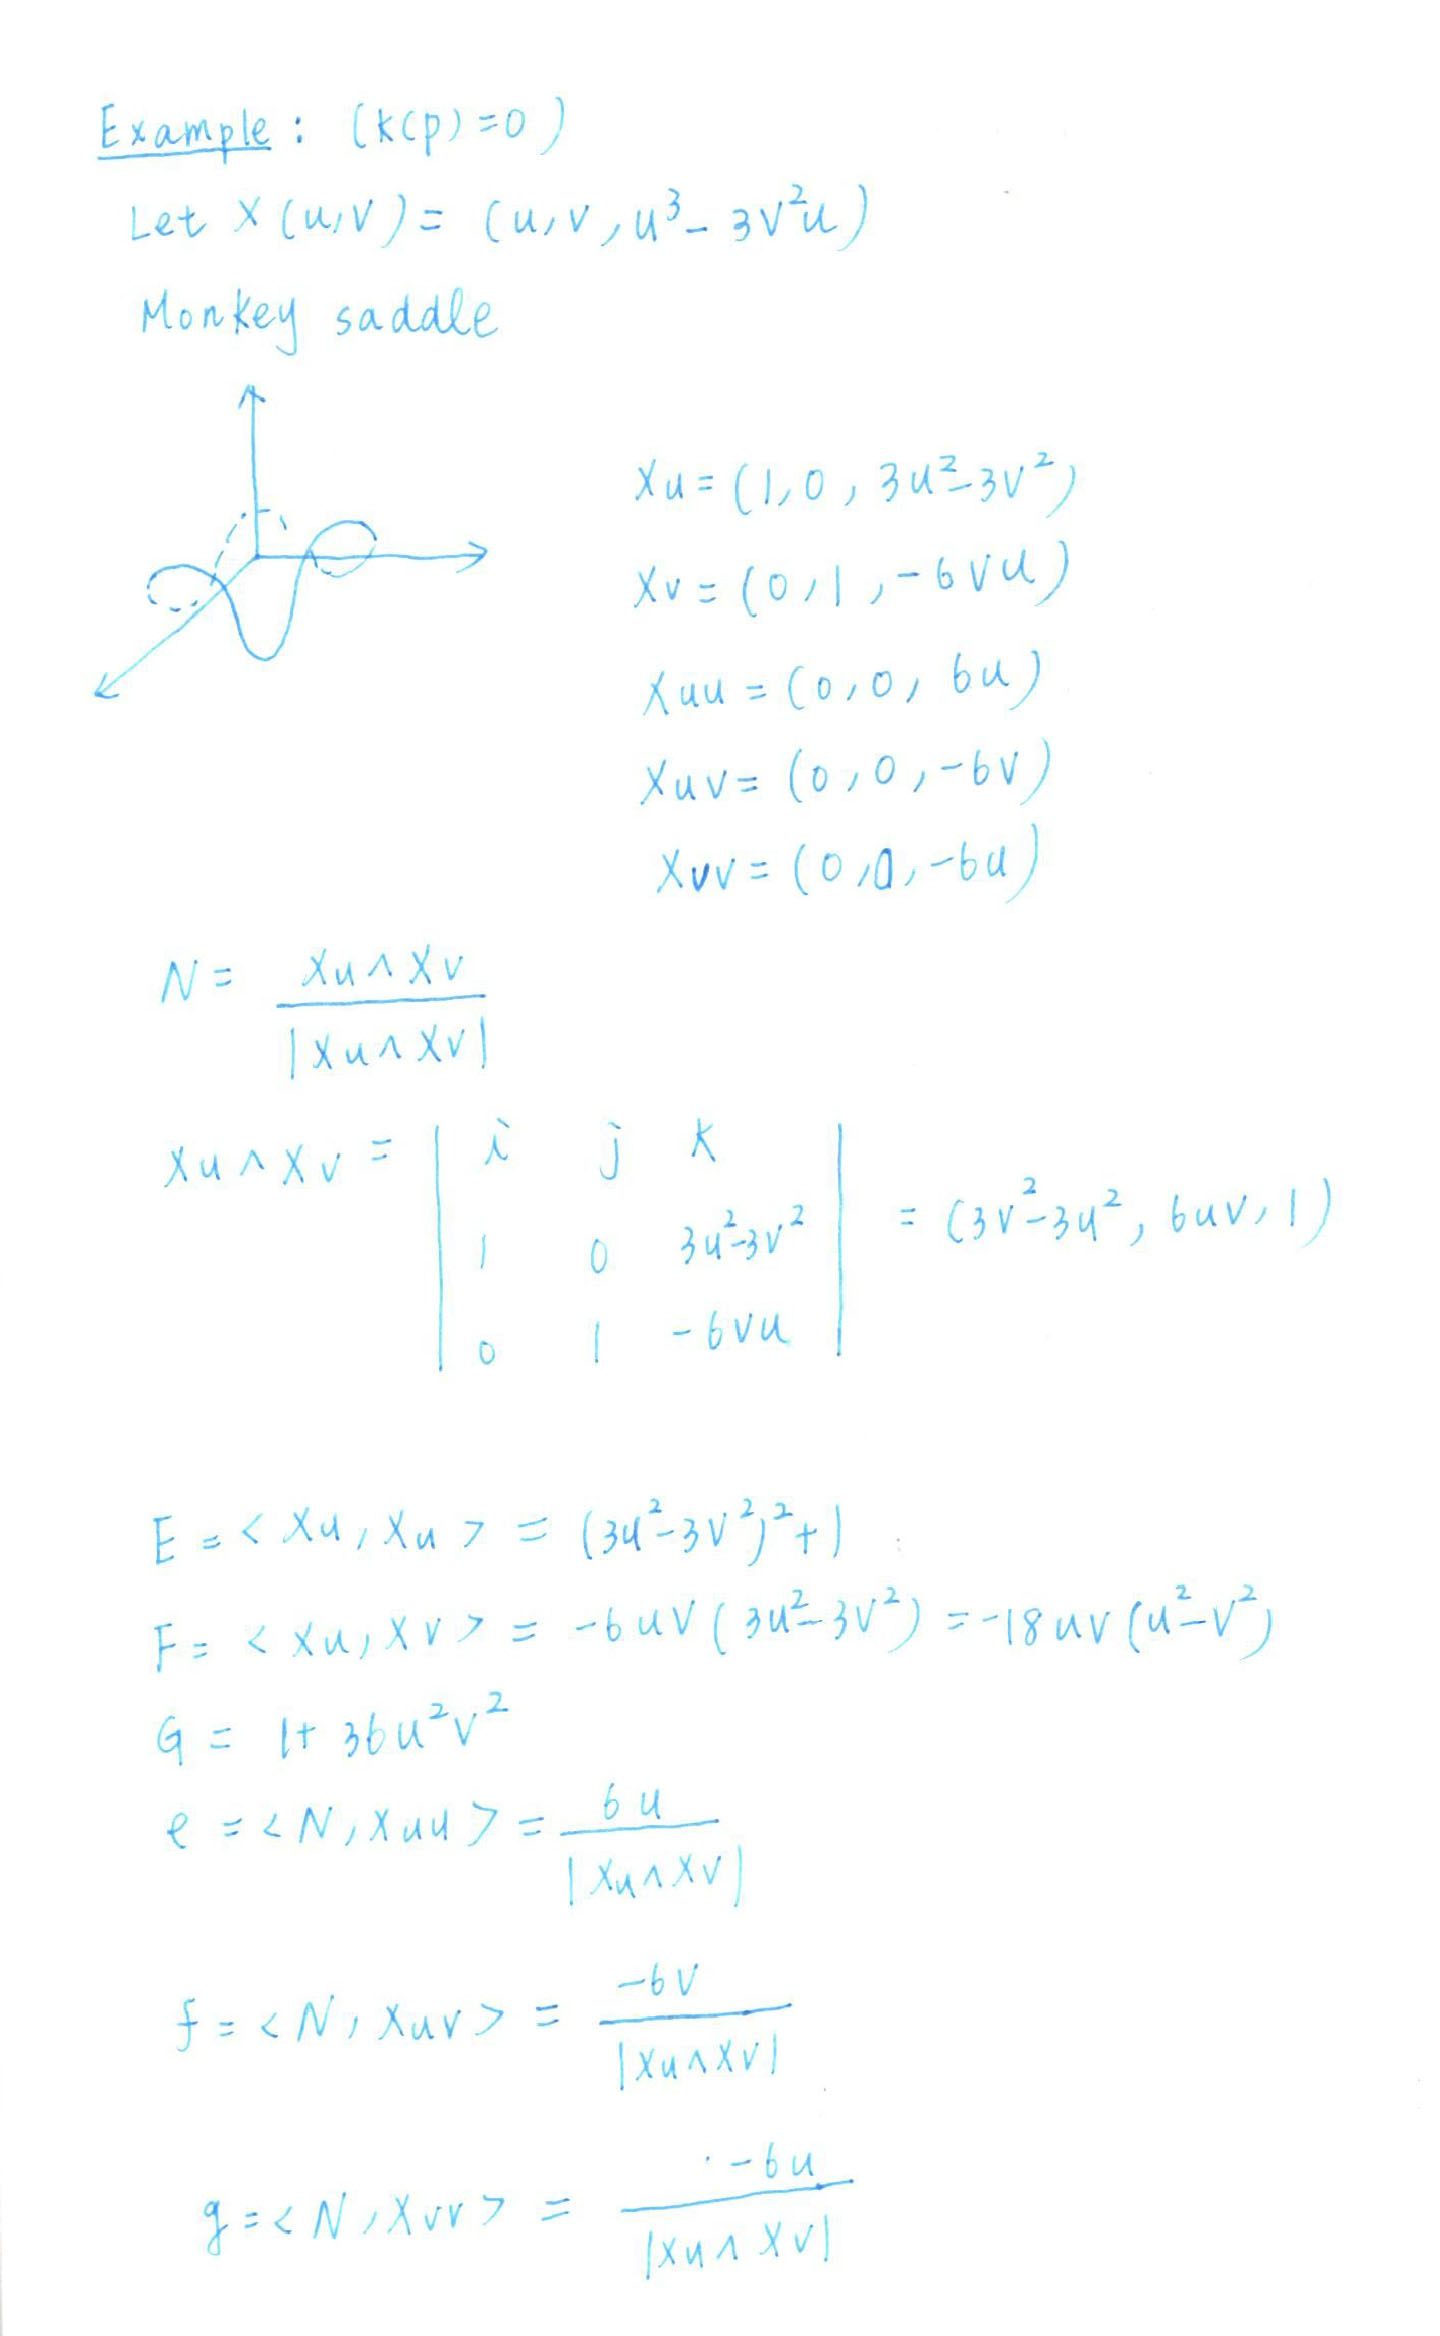 Example : (K(p)=0)
Let X(u,v) = (u,v,u³-3v²u)
Monkey saddle
Xu = (1,0,3u²-3v²)
Xv = (0,1,-6vu)
Xuu = (0,0,6u)
Xuv = (0,0,-6v)
Xvv = (0,0,-6u)
N = Xu∧Xv / |Xu∧Xv|
Xu∧Xv = | i j k
1 0 3u²-3v²
0 1 -6vu | = (3v²-3u², 6uv, 1)
E = <Xu,Xu> = (3u²-3v²)²+1
F = <Xu,Xv> = -6uv(3u²-3v²) = -18uv(u²-v²)
G = 1+36u²v²
e = <N,Xuu> = 6u / |Xu∧Xv|
f = <N,Xuv> = -6v / |Xu∧Xv|
g = <N,Xvv> = -6u / |Xu∧Xv|